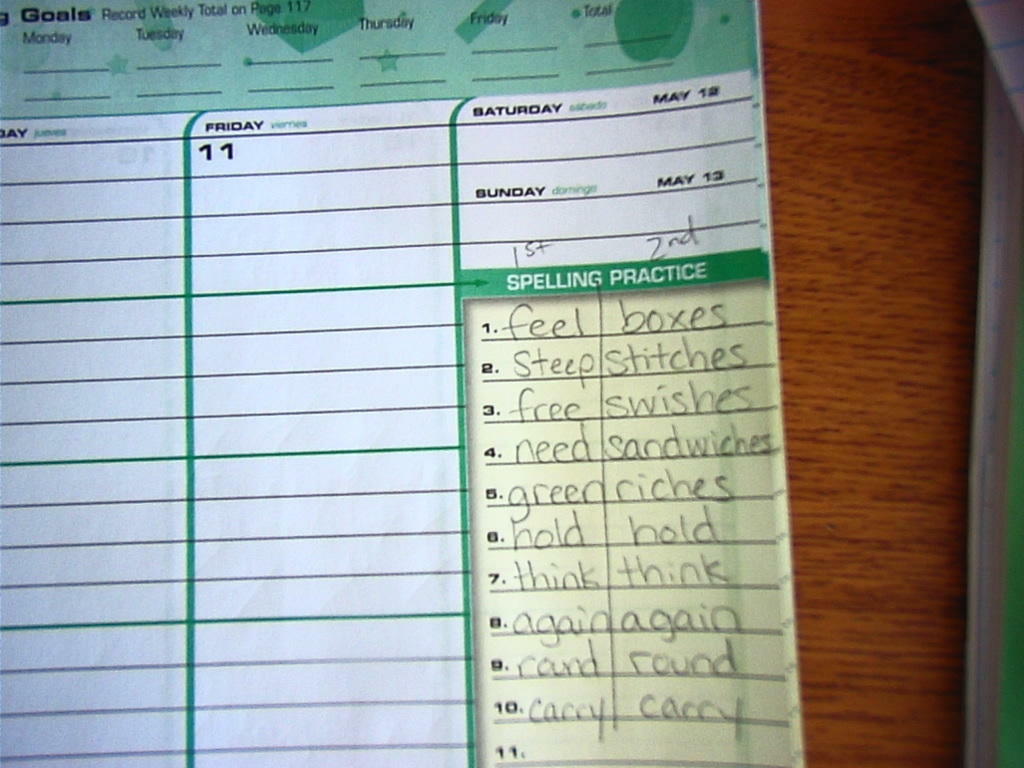 g Goals Record Weekly Total on Page 117
Monday Tuesday Wednesday Thursday Friday Total
DAY jueves FRIDAY viernes SATURDAY sábado MAY 12
11
SUNDAY domingo MAY 13
1st 2nd
SPELLING PRACTICE
1. feel boxes
2. Steep stitches
3. free swishes
4. need sandwiches
5. green riches
6. hold hold
7. think think
8. again again
9. rand round
10. carry carry
11.